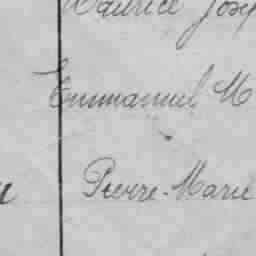 Maurice Jose
Emmanuel M
Pierre-Marie